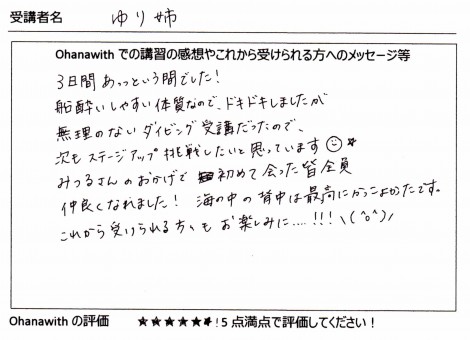 受講者名 ゆり姉
Ohanawith での講習の感想やこれから受けられる方へのメッセージ等
3日間あっっという間でした!
船酔いしやすい体質なので、ドキドキしましたが
無理のないダイビング受講だったので、
次もステージアップ挑戦したいと思っています☺★
みつるさんのおかげで初めて会った皆全員
仲良くなれました! 海の中の背中は最高にかっこよかったです。
これから受けられる方々もお楽しみに....!!!\(^o^)/
Ohanawith の評価 ★★★★★★!5 点満点で評価してください!